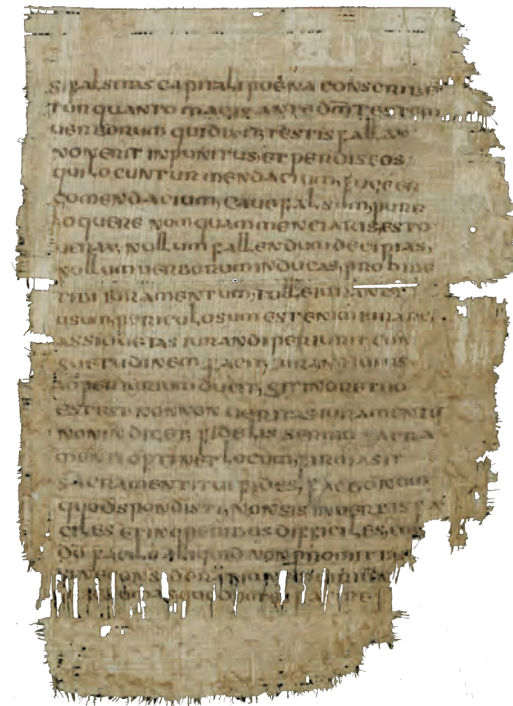 si falsitas capitali poena conscribe
tur quanto magis ante dm testem
uerborum qui dixit testis fallax
non erit inpunitus et perdis eos
qui locuntur mendacium, fuge er
go mendacium, caue falsum, pure
loquere numquam menciaris esto
uerax, nullum fallendum decipias,
nullum uerborum inducas, prohibe
tibi iuramentum, tolle iurandi
usum, periculosum est enim iurare,
assiduetas iurandi periurii con
suetudinem facit, iurandi usus
ad periurium ducit, sit in ore tuo
est est non non ueritas iuramentu
non indiget, fidelis sermo sacra
menti optinet locum, firma sit
sacramenti tui fides,
quod spondisti, non sis in uerbis fa
ciles et in operibus difficiles,
aliquid non promittas